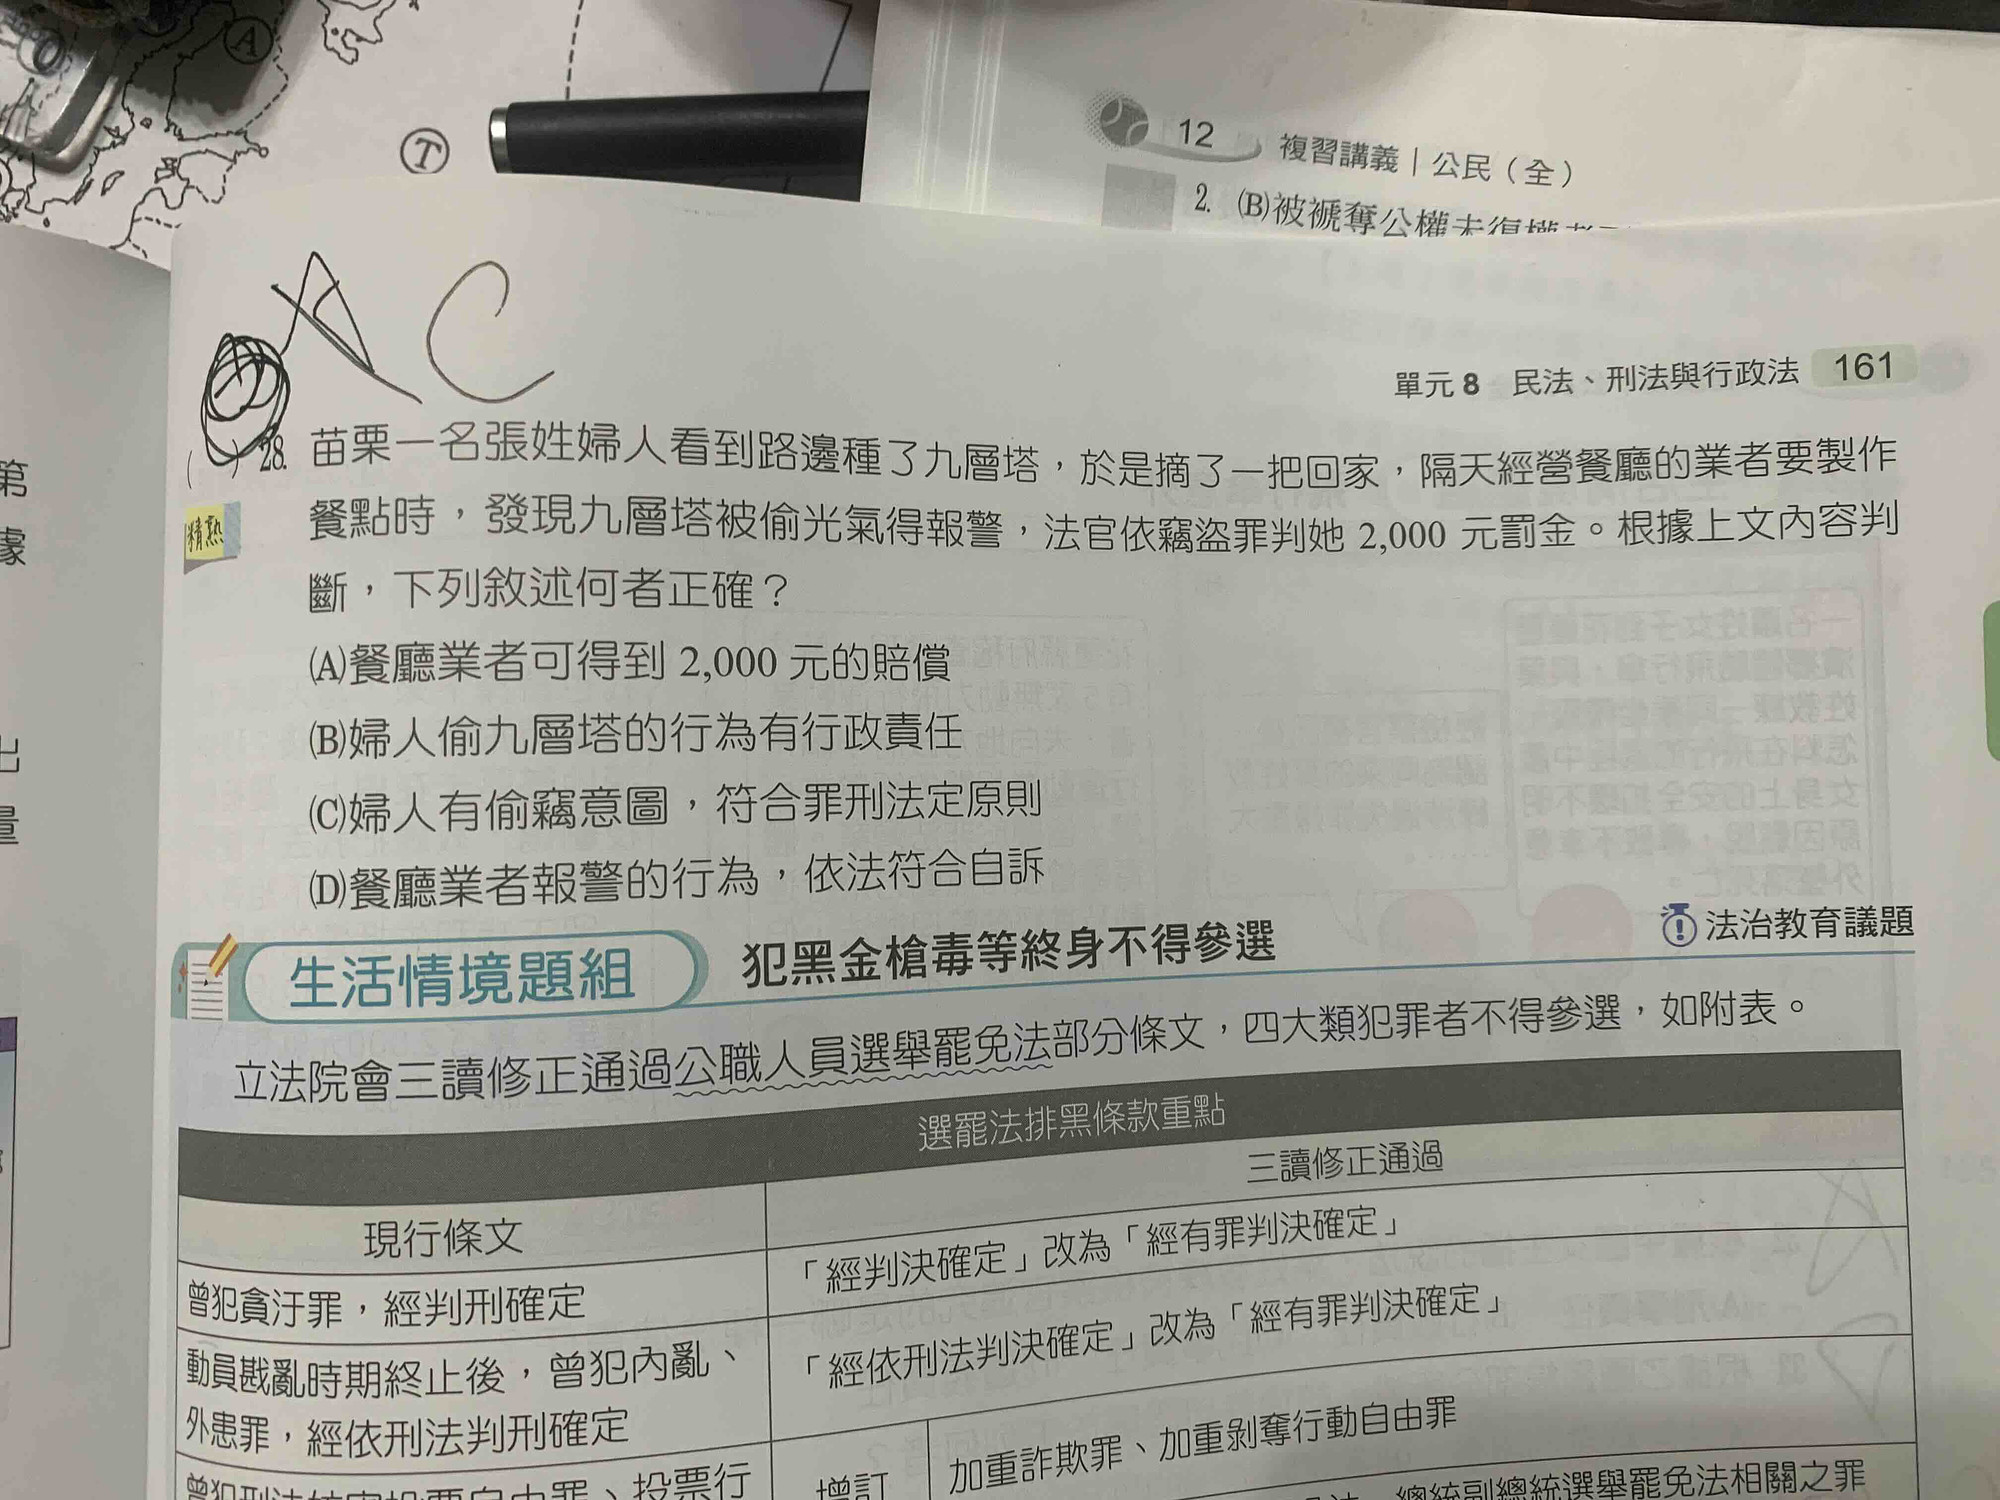 A
T
12 複習講義|公民(全)
2. (B)被褫奪公權未復權
A C
單元 8 民法、刑法與行政法 161
( )28. 苗栗一名張姓婦人看到路邊種了九層塔,於是摘了一把回家,隔天經營餐廳的業者要製作
精熟
餐點時,發現九層塔被偷光氣得報警,法官依竊盜罪判她 2,000 元罰金。根據上文內容判
斷,下列敘述何者正確?
(A)餐廳業者可得到 2,000 元的賠償
(B)婦人偷九層塔的行為有行政責任
(C)婦人有偷竊意圖,符合罪刑法定原則
(D)餐廳業者報警的行為,依法符合自訴
生活情境題組 犯黑金槍毒等終身不得參選 法治教育議題
立法院會三讀修正通過公職人員選舉罷免法部分條文,四大類犯罪者不得參選,如附表。
選罷法排黑條款重點
現行條文 三讀修正通過
曾犯貪汙罪,經判刑確定 「經判決確定」改為「經有罪判決確定」
動員戡亂時期終止後,曾犯內亂、
外患罪,經依刑法判刑確定
「經依刑法判決確定」改為「經有罪判決確定」
增訂
加重詐欺罪、加重剝奪行動自由罪
投票行
總統副總統選舉罷免法相關之罪
第
據
出
量